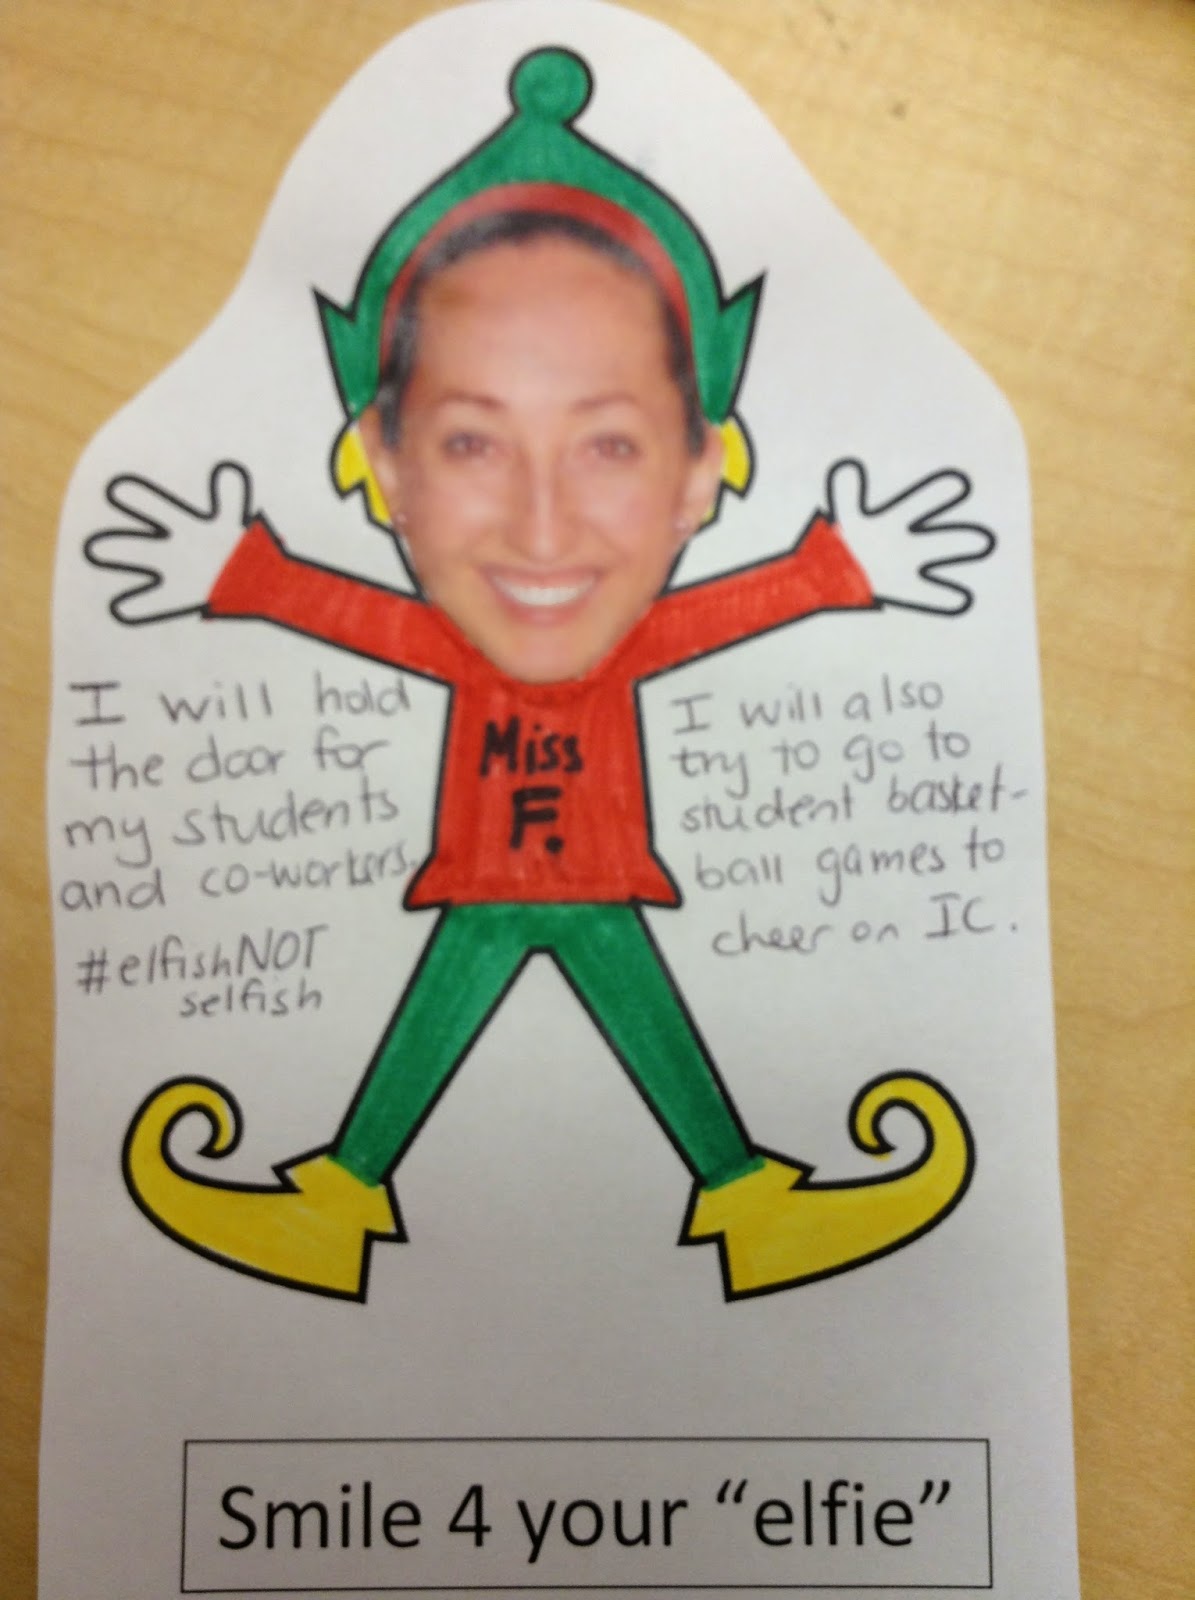 I will hold
the door for
my students
and co-workers.
#elfishNOT
selfish
Miss
F.
I will also
try to go to
student basket-
ball games to
cheer on IC.
Smile 4 your “elfie”